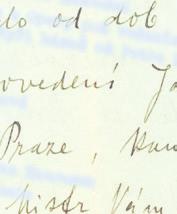 lo od dob
ovedení Ja
Praze, kam
mistr Vám